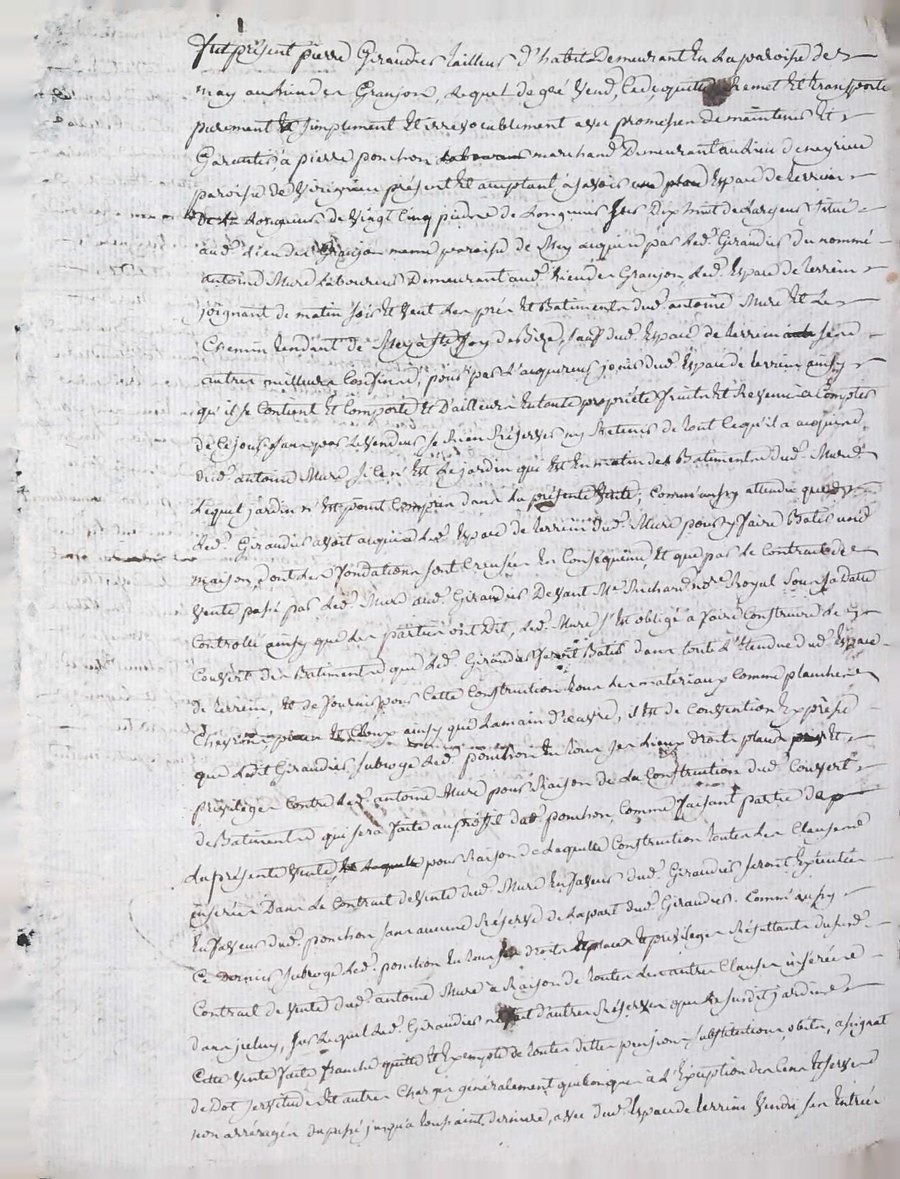 fut présent pierre Giraudier tailleur d'habit Demeurant En La paroisse de
may au lieu des Granjon, Lequel de gré vend, Cede, quitte Remet Et transporte
purement Et simplement Et irrevocablement avec promesse de maintenir Et
Garantir, a pierre ponchon marchand Demeurant au lieu de
paroisse de present Et acceptant, a savoir Espace de terrein
Longueur de vingt Cinq pieds de Longueur sur Dix huit de Largeur situé
aud. Lieu des Granjon meme paroisse de Mey acquis par Led. Giraudier du nommé
antoine Mure Laboureur Demeurant aud. Lieu des Granjon, Led. Espace de terrein
joignant de matin soir Et vent Les prés Et Batiments dud. antoine Mure Et Le
Chemin tendant de Mey a Ste foy de Bize, sauf dud. Espace de terrein ses
autres meilleurs Confins, pour par L'acquereur jouir dud. Espace de terrein ainsy
qu'il se Contient Et Comporte Et D'ailleurs En toute propriété fruits Et Revenus a Compter
de Ce jour, sans par Le vendeur se Rien Réserver ny Retenir de tout Ce qu'il a acquis
dud. antoine Mure si Ce n'Est Le jardin qui Est En matin des Batiments dud. Mure
Lequel jardin n'Est point Compris dans La présente vente; Comm'aussy attendu que
Led. Giraudier avoit acquis led. Espace de terrein dud. Mure pour y faire Batir une
maison, dont Les fondations sont Creusées En Consequence, Et que par Le Contract de
vente passé par Led. Mure aud. Giraudier Devant Me Richard nore Royal sous sa Date
Controllé ainsy que Les parties ont Dit, Led. Mure s'Est obligé a faire Construire Le
Couvert des Batiments que Led. Giraudier feroit Batir dans toute L'Etendue dud. Espace
de terrein, Et de fournir pour Cette Construction tous Les matériaux Comme planches
Chevrons Et Cloux ainsy que La main d'œuvre, il Est de Convention Expresse
que Ledit Giraudier subroge Led. ponchon En tous ses Lieux droits place Et
privileges Contre Led. antoine Mure pour Raison de La Construction dud. Couvert
de Batiments qui sera faite au proffit dud. ponchon, Comme faisant partie de
La présente vente pour Raison de Laquelle Construction toutes Les Clauses
inserées Dans Le Contract de vente dud. Mure En faveur dud. Giraudier seront Exécutées
En faveur dud. ponchon sans aucune Réserve de La part dud. Giraudier. Comm'aussy
Ce dernier subroge Led. ponchon En tous ses droits Et privileges Résultants dud.
Contract de vente dud. antoine Mure a Raison de toutes Les autres Clauses inserées
dans jceluy, sur Lequel Led. Giraudier n'a d'autres Réserves que Le susdit jardin
Cette vente faite franche quitte Et Exempte de toutes dettes pensions, substitutions, obits, assignat
de Dot, servitudes Et autres Charges généralement quelconques a L'Exception des Cens Et servis
non arréragés du passé jusqu'a toussaint derniere, avec dud. Espace de terrein vendu ses Entrées